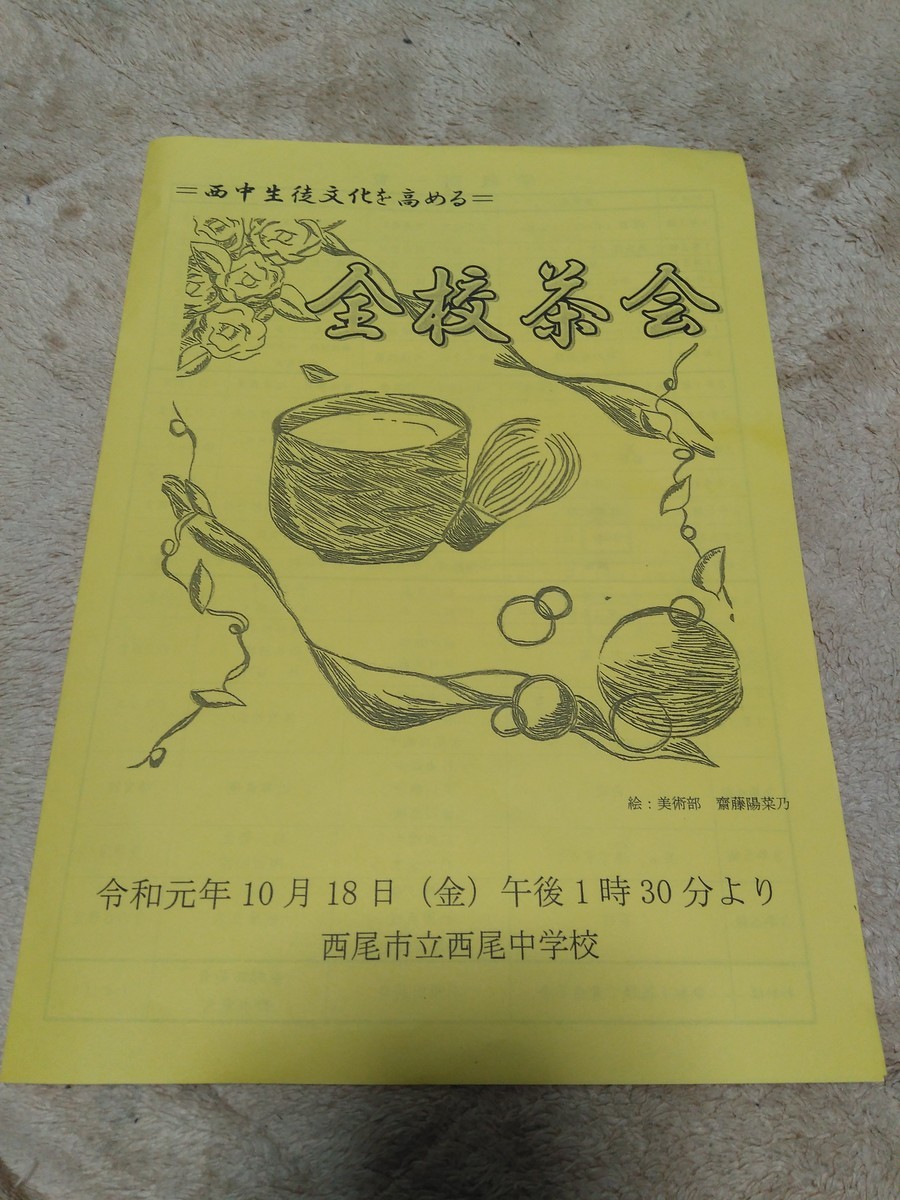 ＝西中生徒文化を高める＝
全校茶会
絵：美術部　齋藤陽菜乃
令和元年10月18日（金）午後1時30分より
西尾市立西尾中学校